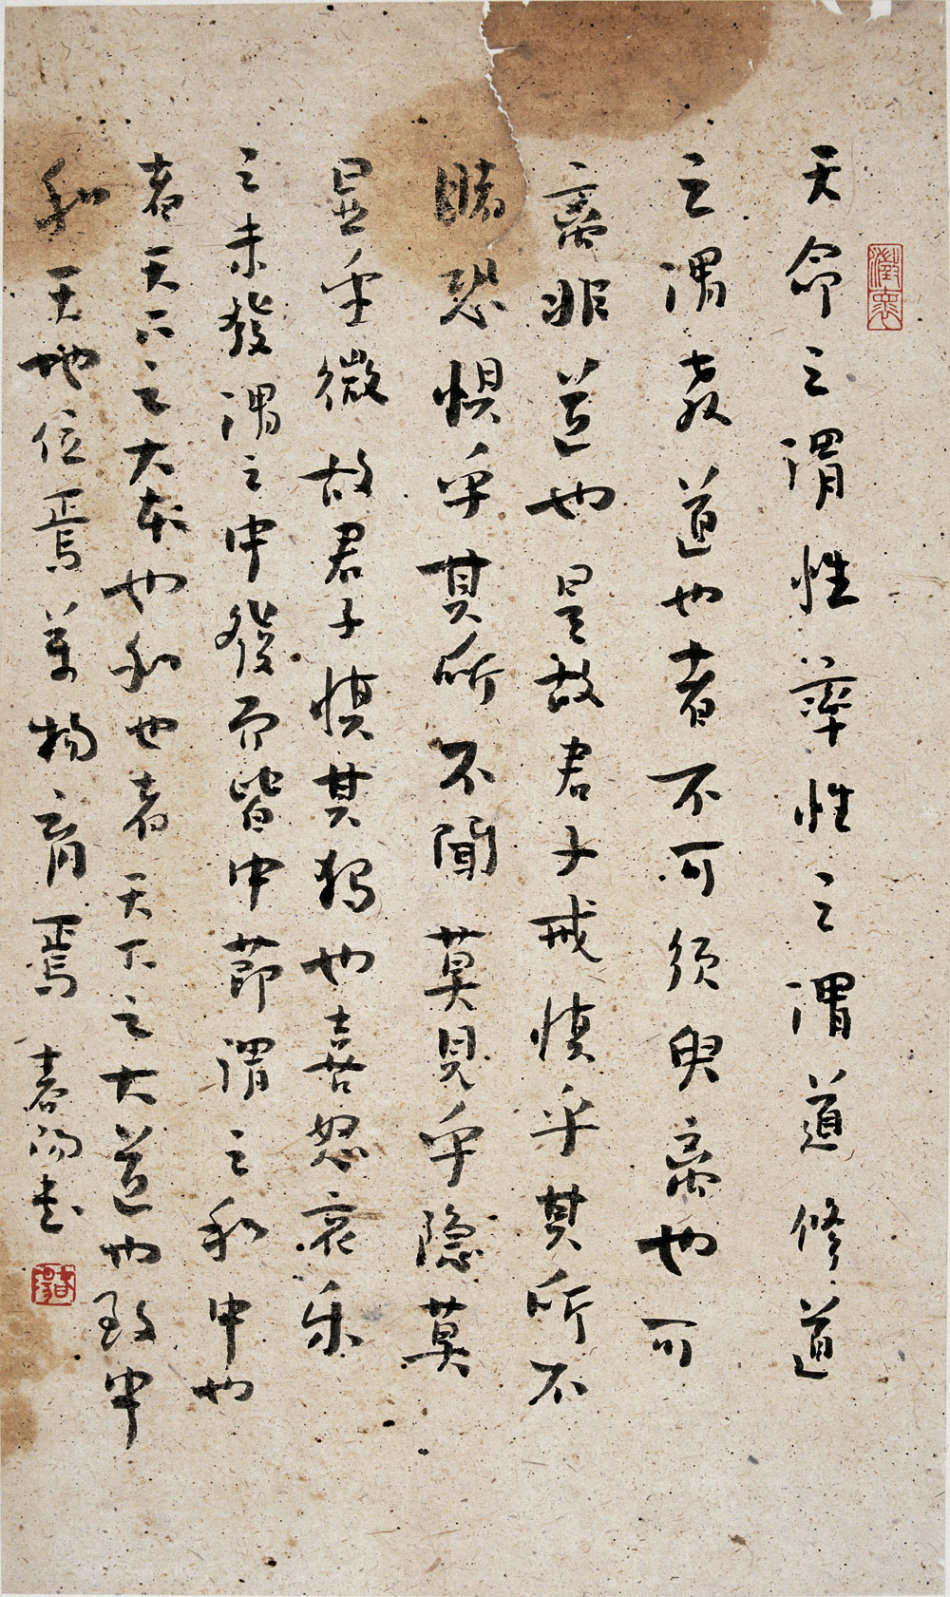 天命之謂性率性之謂道修道
之謂教道也者不可須臾离也可
离非道也是故君子戒慎乎其所不
睹恐懼乎其所不聞莫見乎隱莫
显乎微故君子慎其獨也喜怒哀樂
之未發謂之中發而皆中節謂之和中也
者天下之大本也和也者天下之大道也致中
和天地位焉萬物育焉 春陽書
澄懷
春陽